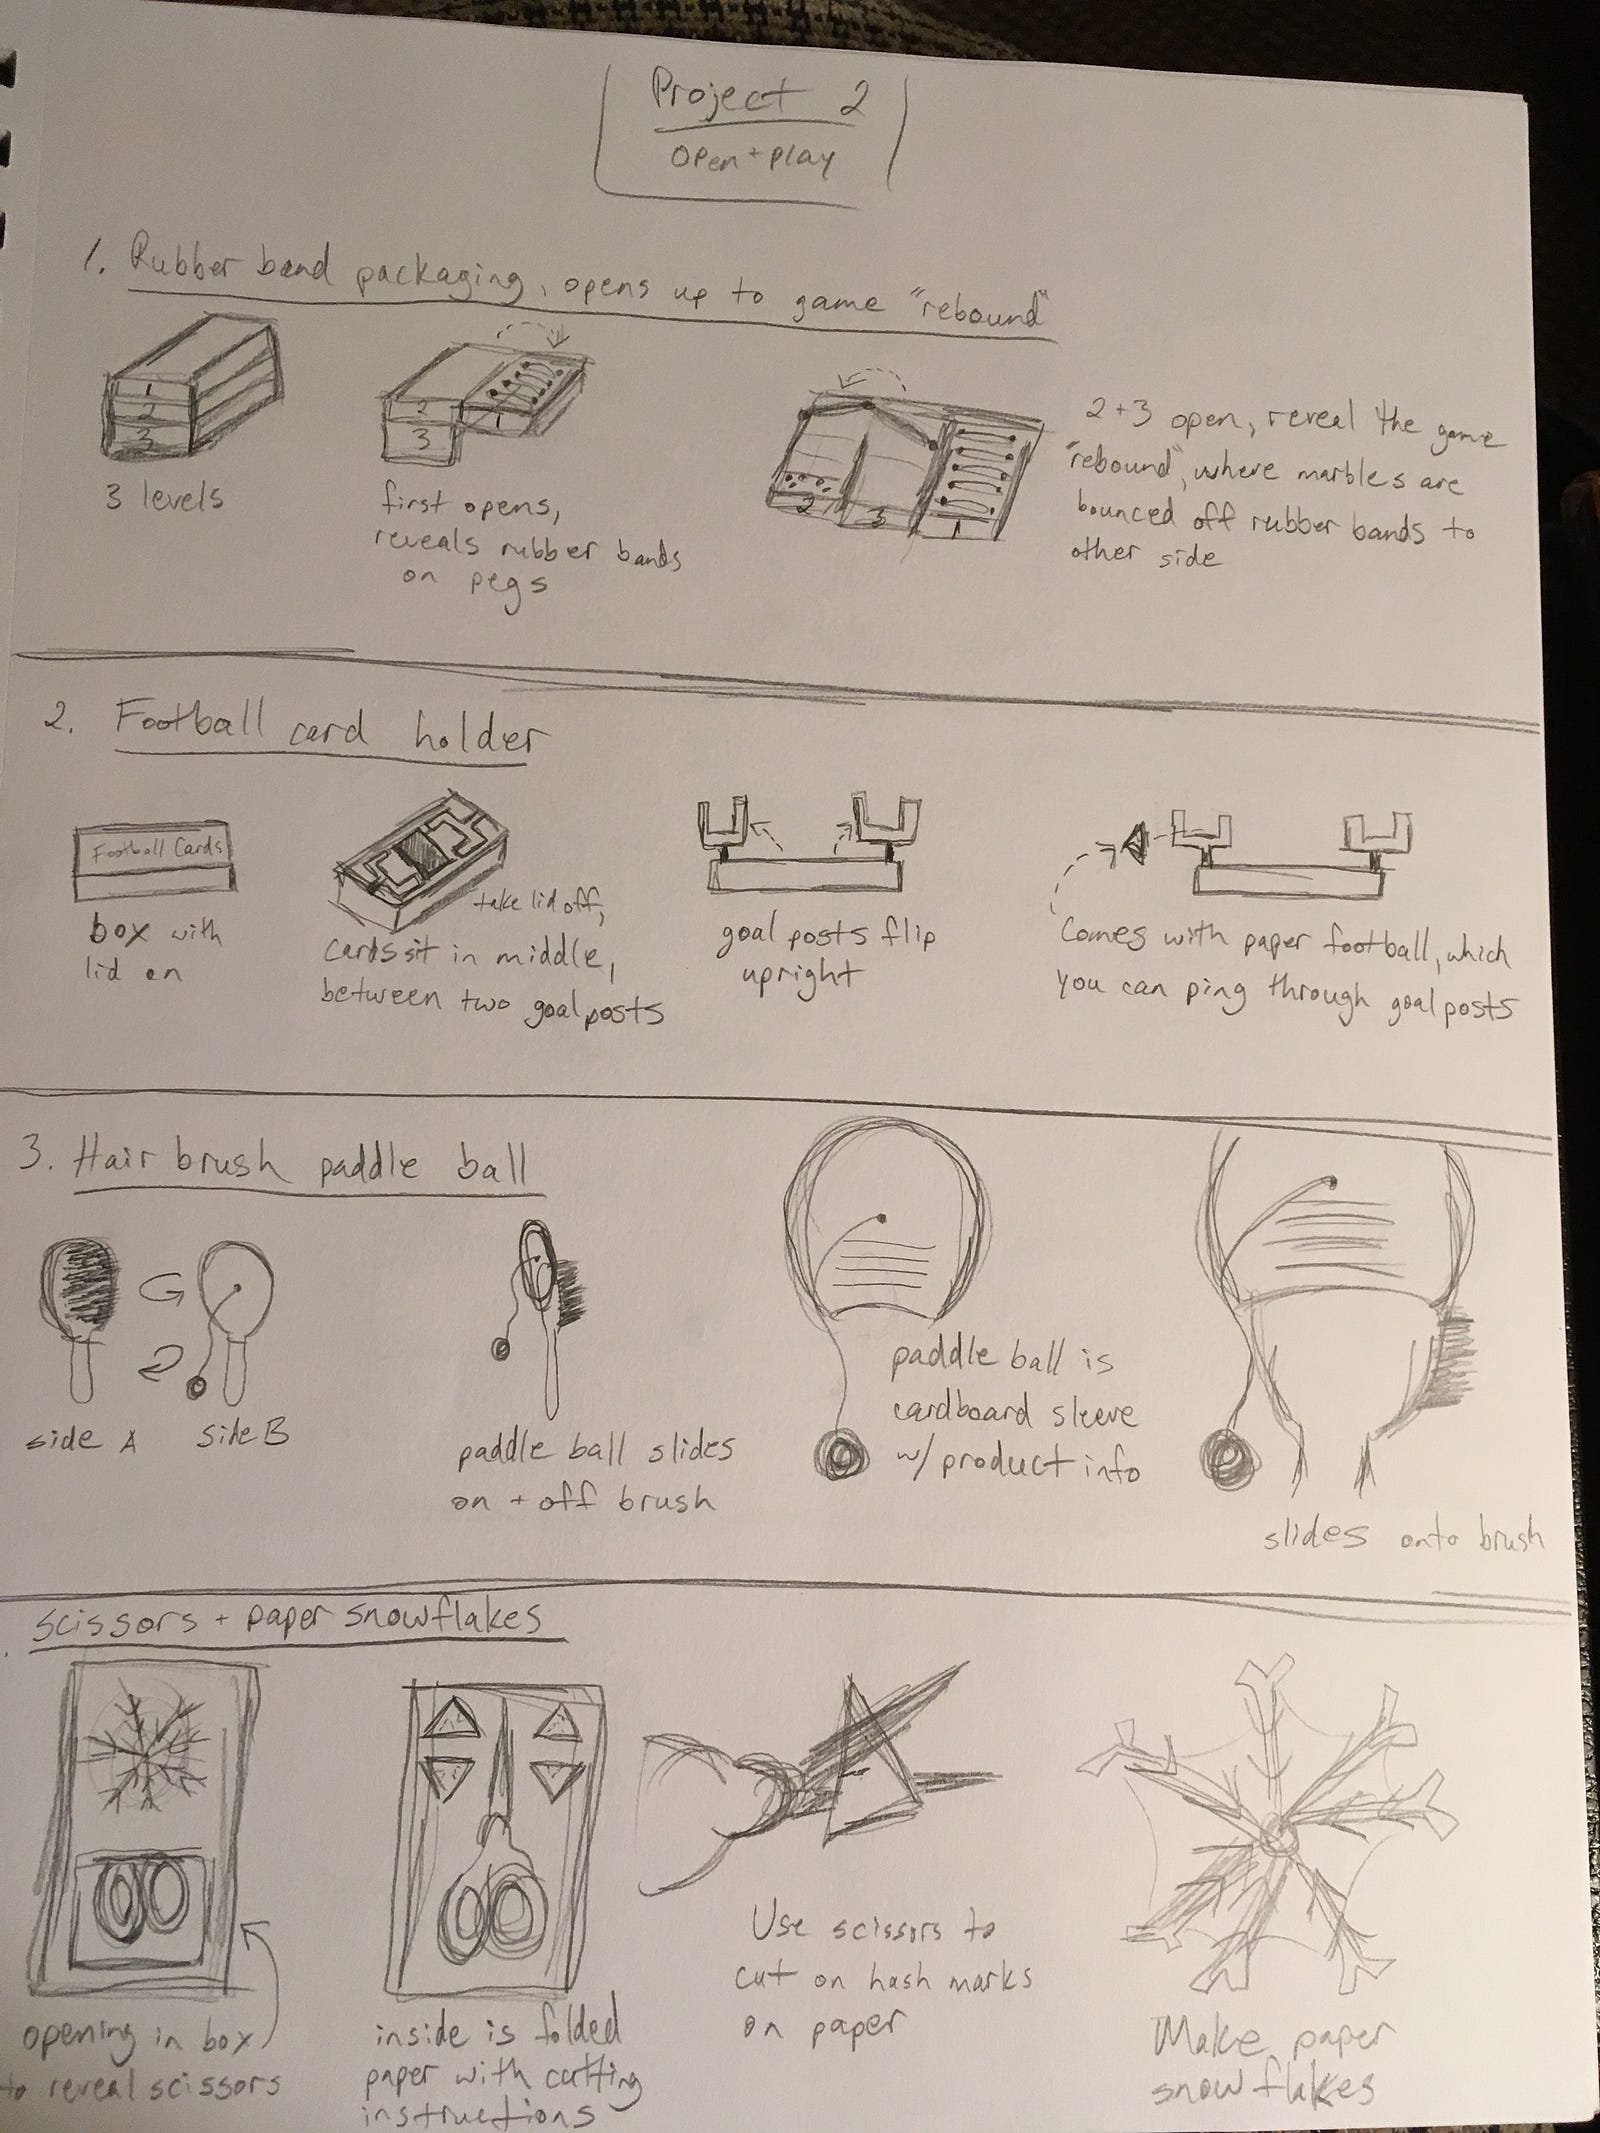 Project 2
open + play
1. Rubber band packaging, opens up to game "rebound"
1
2
3
3 levels
2
3
1
first opens,
reveals rubber bands
on pegs
2
3
1
2+3 open, reveal the game
"rebound", where marbles are
bounced off rubber bands to
other side
2. Football card holder
Football Cards
box with
lid on
take lid off,
cards sit in middle,
between two goal posts
goal posts flip
upright
Comes with paper football, which
you can ping through goal posts
3. Hair brush paddle ball
side A
side B
paddle ball slides
on + off brush
paddle ball is
cardboard sleeve
w/ product info
slides onto brush
. scissors + paper snowflakes
opening in box
to reveal scissors
inside is folded
paper with cutting
instructions
Use scissors to
cut on hash marks
on paper
Make paper
snowflakes